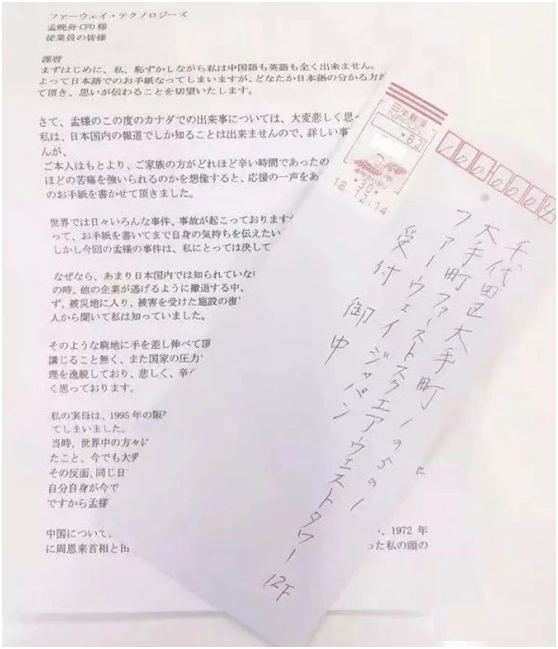 ファーウェイ・テクノロジーズ
孟晩舟CFO様
従業員の皆様
謹啓
まずはじめに、私、恥ずかしながら私は中国語も英語も全く出来ません。
よって日本語でのお手紙なってしまいますが、どなたか日本語の分かる方
て頂き、思いが伝わることを切望いたします。
さて、孟様のこの度のカナダでの出来事については、大変悲しく思
私は、日本国内の報道でしか知ることは出来ませんので、詳しい事
んが、
ご本人はもとより、ご家族の方がどれほど辛い時間であったの
ほどの苦痛を強いられるのかを想像すると、応援の一声をあ
のお手紙を書かせて頂きました。
世界では日々いろんな事件、事故が起こっております
って、お手紙を書いてまで自身の気持ちを伝えたい
しかし今回の孟様の事件は、私にとっては決して
なぜなら、あまり日本国内では知られていな
の時、他の企業が逃げるように撤退する中、
ず、被災地に入り、被害を受けた施設の復
人から聞いて私は知っていました。
そのような窮地に手を差し伸べて頂
講じること無く、また国家の圧力
理を逸脱しており、悲しく、辛
く思っております。
私の実母は、1995年の阪
てしまいました。
当時、世界中の方々に
たこと、今でも大
その反面、同じ日
自分自身が今で
ですから孟様
中国について、
、1972 年
に周恩来首相と
った私の頭の
日本郵便
18.12.14
千代田区大手町1の5の1
大手町ファーストスクエアウエストタワー12F
ファーウェイジャパン
受付 御中